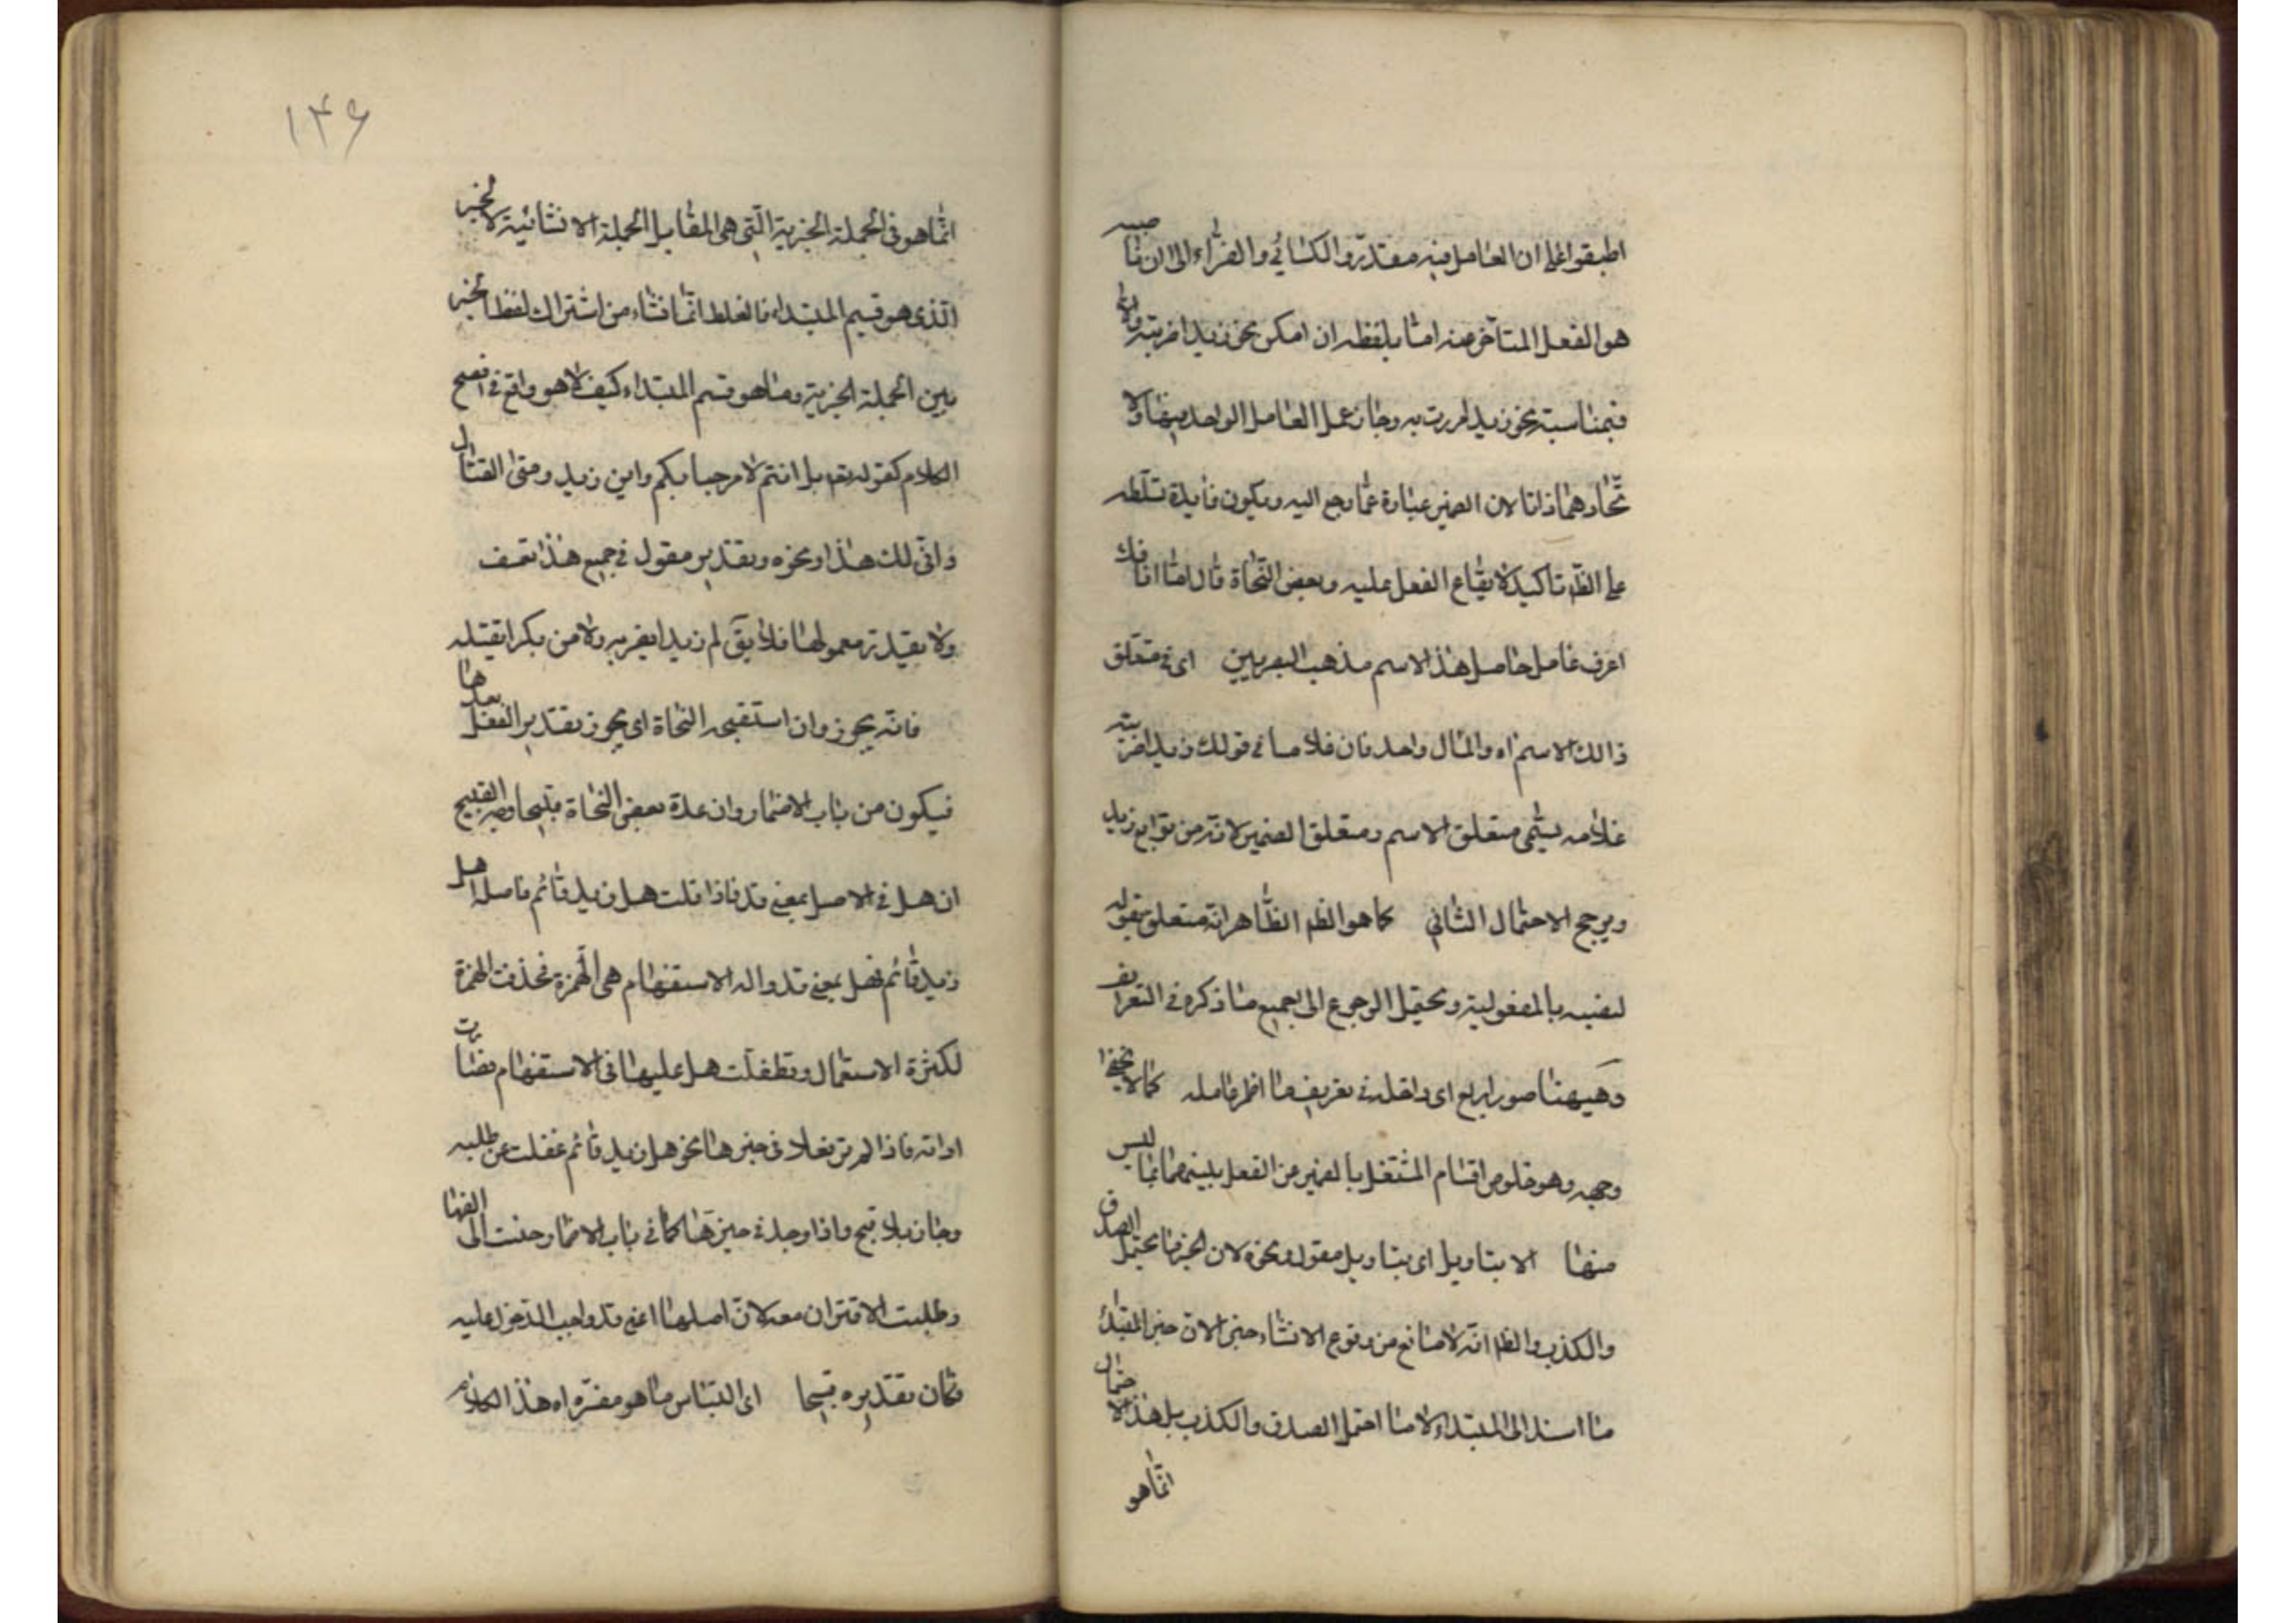 اطبقوا على ان العامل فيه مقدر والكسائي والفراء الى ان ناصبه
هو الفعل المتأخر عنه اما بلفظه ان امكن نحو زيدا ضربته والا
فبمناسبته نحو زيدا مررت به وجاز عمل العامل الواحد فيهما ولا
تحادهما ذاتا لان الضمير عبارة عما رجع اليه ويكون فايدة تسلطه
على الظم تاكيد لايقاع الفعل عليه وبعض النحاة قال اما اذا
اعرف عامل حاصل هذا الاسم مذهب البصريين اى فى متعلق
ذالك الاسم اه والمال واحد فان غلاما فى قولك زيدا ضربت
غلامه يسمى متعلق الاسم ومتعلق الضمير لانه من توابع زيد
ويرجح الاحتمال الثانى كما هو الظم الظاهر انه متعلق بقوله
لنصبه بالمفعولية ويحتمل الرجوع الى جميع ما ذكره فى التعريف
وهيهنا صور اربع اى داخلة فى تعريف ما اضمر عامله كما لا يخفى
وجهه وهو خلوص اقسام المشتغل بالضمير من الفعل بينهما مما ليس
منها الا بتاويل اى بتاويل مقول ونحوه لان الخبر ما يحتمل الصدق
والكذب والظم انه لا مانع من وقوع الانشاء خبرا لان خبر المبتدأ
ما اسند الى المبتداء لا ما احتمل الصدق والكذب بل هذا الاحتمال
انما هو
١٤۶
انما هو فى الجملة الخبرية التى هى المقابل الجملة الانشائية لا الخبر
الذى هو قسيم المبتداء فالغلط انما نشاء من اشتراك لفظ الخبر
بين الجملة الخبرية وما هو قسم المبتداء كيف لا هو واقع فى افصح
الكلام كقوله تعم بل انتم لا مرحبا بكم واين زيد ومتى القتال
وانى لك هذا ونحوه وتقدير مقول فى جميع هذا تعسف
ولا معمولها فلا يق لم زيدا يضربه ولا من بكرا يقتله
فانه يجوز وان استقبحه النحاة اى يجوز تقدير الفعل بعدها
فيكون من باب الاضمار وان عده بعض النحاة قبيحا وجه القبيح
ان هل فى الاصل بمعنى قد فاذا قلت هل زيد قائم فاصله اهل
زيد قائم فهل بمعنى قد واله الاستفهام هى الهمزة فحذفت الهمزة
لكثرة الاستعمال وتطفلت هل عليها فى الاستفهام فصارت
اداته فاذا لم تر فعلا فى حيزها نحو هل زيد قائم غفلت عن طلبه
وجاز بلا قبح واذا وجد فى حيزها كما فى باب الاضمار حنت الى الفها
وطلبت الاقتران معه لان اصلها اعنى قد واجب الدخول عليه
فكان تقديره قبيحا اى التباس ما هو مفسر اه هذا الكلام